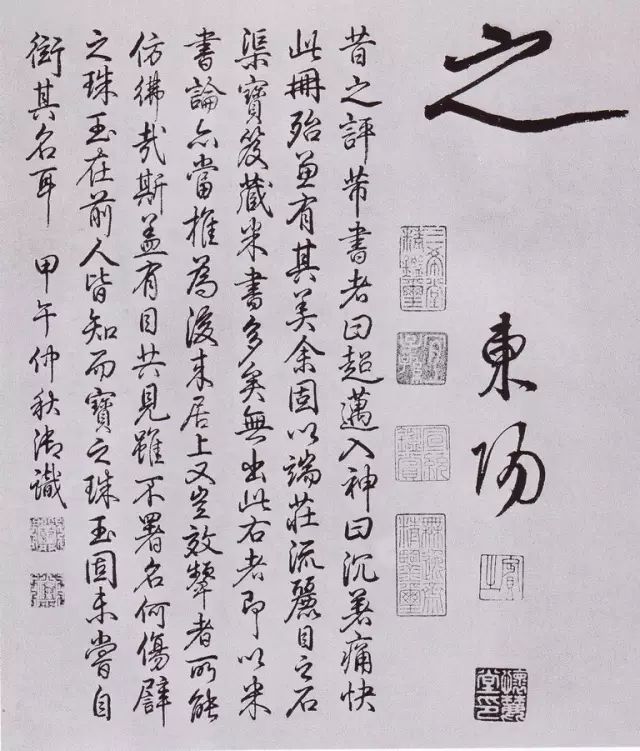 之
東陽
昔之評芾書者曰超邁入神曰沉著痛快
此冊殆兼有其美余固以端莊流麗目之石
渠寶笈藏米書多矣無出此右者即以米
書論亦當推為後來居上又豈效顰者所能
仿彿哉斯蓋有目共見雖不署名何傷譬
之珠玉在前人皆知而寶之珠玉固未嘗自
衒其名耳 甲午仲秋御識
三希堂精鑑璽
宜子孫
石渠寶笈
懷冀堂印